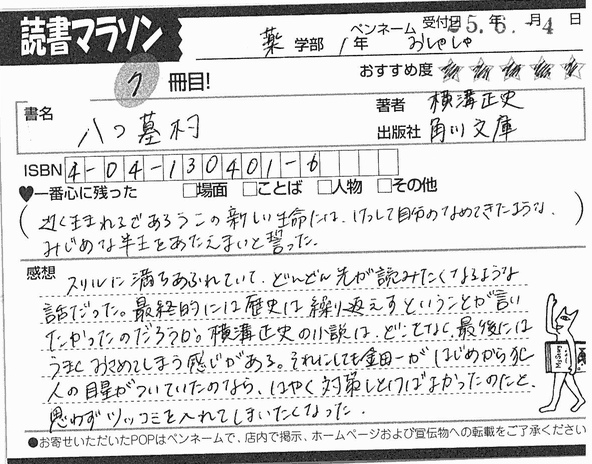 読書マラソン
薬 学部 1年 ペンネーム おしゃしゃ 受付日 25年 6.月 4日
7 冊目! おすすめ度 ★★★★★
書名 八つ墓村 著者 横溝正史
出版社 角川文庫
ISBN 4-04-130401-6
♥一番心に残った □場面 □ことば □人物 □その他
(近く生まれるであろうこの新しい生命には、けっして自分のなめてきたような、
みじめな半生をあたえまいと誓った。)
感想
スリルに満ちあふれていて、どんどん先が読みたくなるような
話だった。最終的には歴史は繰り返えすということが言い
たかったのだろうか。横溝正史の小説は、どことなく、最後には
うまくおさめてしまう感じがある。それにしても金田一がはじめから犯
人の目星がついていたのなら、はやく対策しとけばよかったのだと、
思わずツッコミを入れてしまいたくなった。
●お寄せいただいたPOPはペンネームで、店内で掲示、ホームページおよび宣伝物への転載をご了承ください